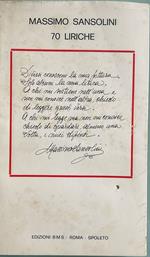 MASSIMO SANSOLINI
70 LIRICHE
conoscono la mia pittura
la mia lirica.
A chi mi
e
non mi conosce nell'altra, chiedo
di leggere questi versi.
A chi mi legge ma non mi conosce
chiedo di guardare, almeno una
volta, i miei dipinti.
Massimo Sansolini
EDIZIONI B.M.S. - ROMA - SPOLETO